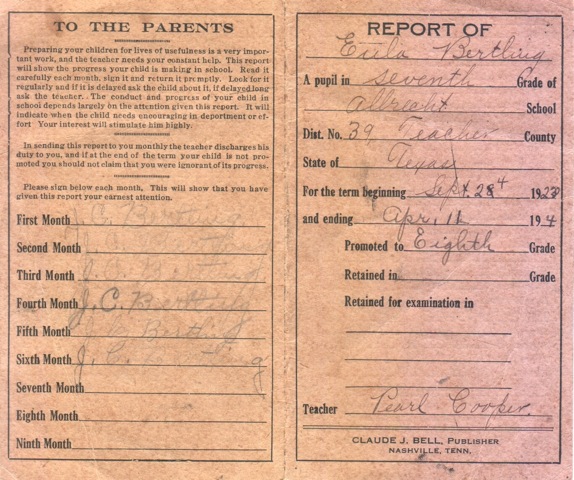 TO THE PARENTS
Preparing your children for lives of usefulness is a very impor-
tant work, and the teacher needs your constant help. This report
will show the progress your child is making in school. Read it
carefully each month, sign it and return it promptly. Look for it
regularly and if it is delayed ask the child about it, if delayed long
ask the teacher. The conduct and progress of your child in
school depends largely on the attention given this report. It will
indicate when the child needs encouraging in deportment or ef-
fort Your interest will stimulate him highly.
In sending this report to you monthly the teacher discharges his
duty to you, and if at the end of the term your child is not pro-
moted you should not claim that you were ignorant of its progress.
Please sign below each month, This will show that you have
given this report your earnest attention.
First Month J. C. Berthing
Second Month
Third Month J. C. Berthing
Fourth Month J. C. Berthing
Fifth Month J. C. Berthing
Sixth Month J. C. Berthing
Seventh Month
Eighth Month
Ninth Month
REPORT OF
Eula Berthing
A pupil in seventh Grade of
Albrecht School
Dist. No. 39 Teacher County
State of Texas
For the term beginning Sept. 19
and ending Apr. 11 194
Promoted to Eighth Grade
Retained in Grade
Retained for examination in
Teacher Pearl Cooper
CLAUDE J. BELL, PUBLISHER
NASHVILLE, TENN.